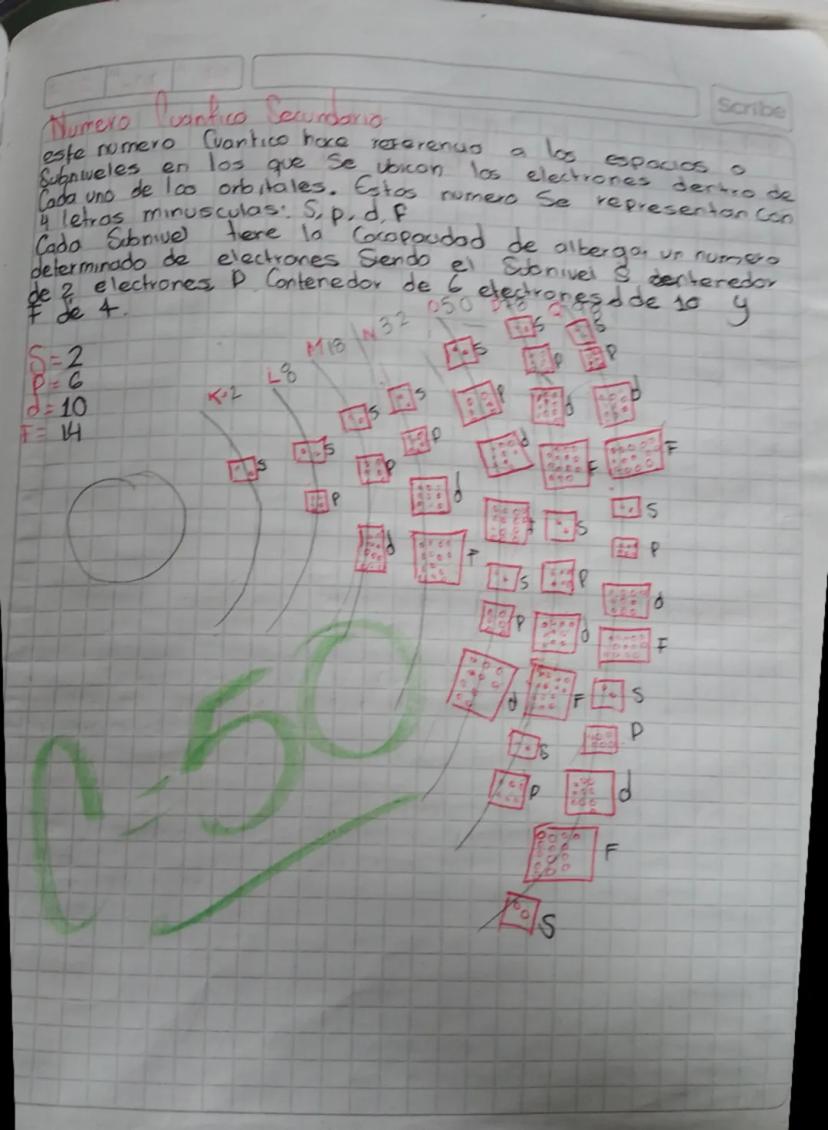 Scribe
Numero Cuantico Secundario
este numero Cuantico hace referencia a los espacios o
Subniveles en los que se ubican los electrones dentro de
Cada uno de los orbitales. Estos numero Se representan con
4 letras minusculas: S, p, d, F
Cada Subnivel tiene la Cacopacidad de albergar un numero
determinado de electrones Siendo el Subnivel S
de 2 electrones P Contenedor de 6 electrones d de 10 y
F de 4.
S=2
P=6
d=10
F=14
K-2 L8 M18 N32 O50
S
S P
S P d
S P d F
S P d F S P d
S P d F S P d F S P
S P d F S P d F S P d F S
C-50